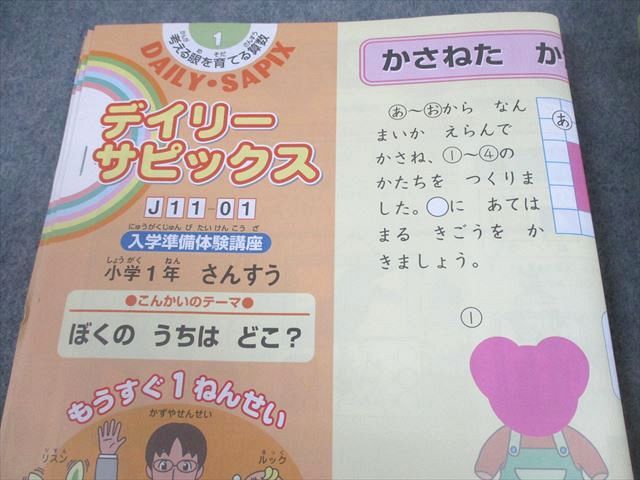 1
考える眼を育てる算数
DAILY・SAPIX
デイリー
サピックス
J11-01
にゅうがくじゅんびたいけんこうざ
入学準備体験講座
しょうがく ねん
小学1年 さんすう
●こんかいのテーマ●
ぼくの うちは どこ?
もうすぐ1ねんせい
かずやせんせい
リスン
ルック
かさねた か
あ~おから なん
まいか えらんで
かさね、①~④の
かたちを つくりま
した。◯に あては
まる きごうを か
きましょう。
①
あ